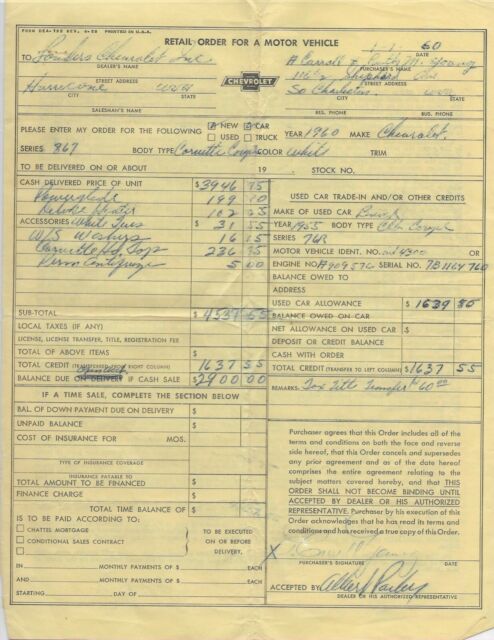 FORM DEA-128 REV. 4-58 PRINTED IN U.S.A.
RETAIL ORDER FOR A MOTOR VEHICLE
1 - 1 60
TO Chevrolet Inc
DEALER'S NAME
H Carroll & M. Young
DATE
PURCHASER'S NAME
STREET ADDRESS
Shepherd Ave
STREET ADDRESS
Hurricane WVA
CITY STATE
CHEVROLET
So Charleston
CITY STATE
SALESMAN'S NAME
RES. PHONE BUS. PHONE
PLEASE ENTER MY ORDER FOR THE FOLLOWING NEW CAR
USED TRUCK YEAR 1960 MAKE Chevrolet.
SERIES 867 BODY TYPE Corvette COLOR White TRIM
TO BE DELIVERED ON OR ABOUT 19 STOCK NO.
CASH DELIVERED PRICE OF UNIT $3946 75
Powerglide 199 10
Deluxe Heater 102 25
ACCESSORIES White Tires 31 55
W/S Washers 16 15
Corvette Top 236 75
Perm Antifreeze 5 00
USED CAR TRADE-IN AND/OR OTHER CREDITS
MAKE OF USED CAR Buick
YEAR 1955 BODY TYPE
SERIES 76R
MOTOR VEHICLE IDENT. NO.
ENGINE NO. SERIAL NO. 7B1164760
BALANCE OWED TO
ADDRESS
USED CAR ALLOWANCE $ 1639
BALANCE OWED ON CAR $
NET ALLOWANCE ON USED CAR $
DEPOSIT OR CREDIT BALANCE
CASH WITH ORDER
TOTAL CREDIT (TRANSFER TO LEFT COLUMN) $1637 55
REMARKS: Tax Title Transfer 60 00
SUB-TOTAL $ 4537 55
LOCAL TAXES (IF ANY)
LICENSE, LICENSE TRANSFER, TITLE, REGISTRATION FEE
TOTAL OF ABOVE ITEMS $
TOTAL CREDIT (TRANSFERRED FROM RIGHT COLUMN) 1637 55
BALANCE DUE ON DELIVERY IF CASH SALE $2900 00
IF A TIME SALE, COMPLETE THE SECTION BELOW
BAL. OF DOWN PAYMENT DUE ON DELIVERY $
UNPAID BALANCE $
COST OF INSURANCE FOR MOS.
TYPE OF INSURANCE COVERAGE
INSURANCE PAYABLE TO
TOTAL AMOUNT TO BE FINANCED $
FINANCE CHARGE $
TOTAL TIME BALANCE OF $
IS TO BE PAID ACCORDING TO:
CHATTEL MORTGAGE
CONDITIONAL SALES CONTRACT
TO BE EXECUTED ON OR BEFORE DELIVERY.
IN MONTHLY PAYMENTS OF $
AND MONTHLY PAYMENTS OF $
STARTING DAY OF
Purchaser agrees that this Order includes all of the
terms and conditions on both the face and reverse
side hereof, that this Order cancels and supersedes
any prior agreement and as of the date hereof
comprises the entire agreement relating to the
subject matters covered hereby, and that THIS
ORDER SHALL NOT BECOME BINDING UNTIL
ACCEPTED BY DEALER OR HIS AUTHORIZED
REPRESENTATIVE. Purchaser by his execution of this
Order acknowledges that he has read its terms and
conditions and has received a true copy of this Order.
X Young
PURCHASER'S SIGNATURE DATE
ACCEPTED BY Albert
DEALER OR HIS AUTHORIZED REPRESENTATIVE